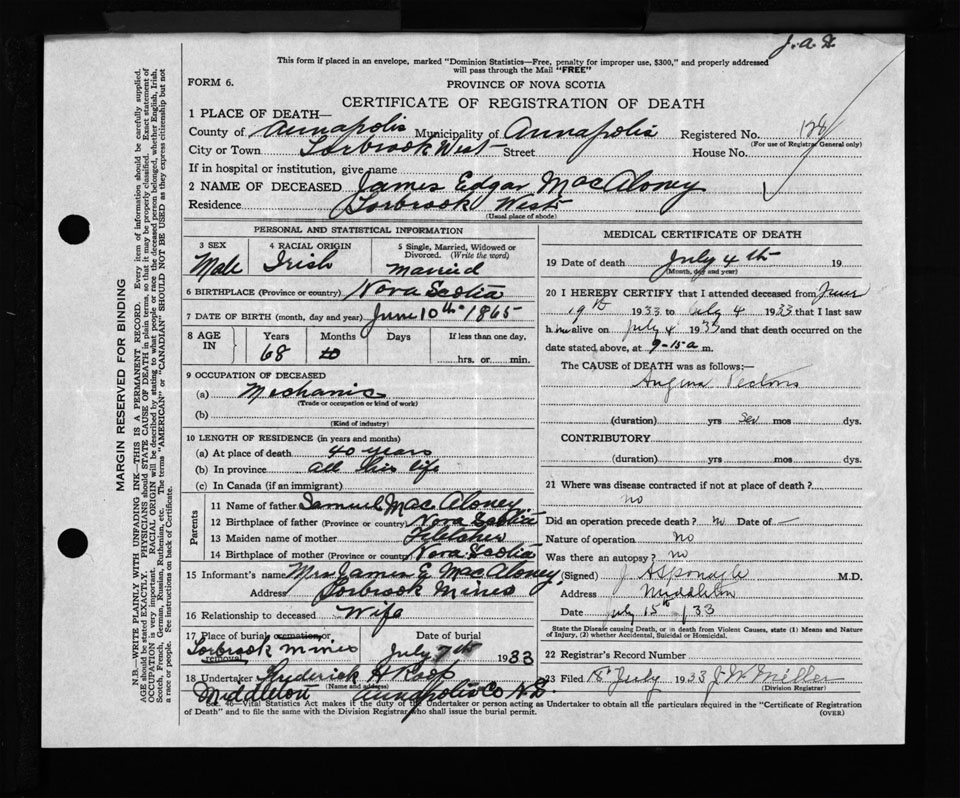 J.a.
This form if placed in an envelope, marked "Dominion Statistics—Free, penalty for improper use, $300," and properly addressed
will pass through the Mail "FREE"
FORM 6. PROVINCE OF NOVA SCOTIA
CERTIFICATE OF REGISTRATION OF DEATH
1 PLACE OF DEATH—
County of Annapolis Municipality of Annapolis Registered No. 128
(For use of Registrar General only)
City or Town Torbrook West Street House No.
If in hospital or institution, give name
2 NAME OF DECEASED James Edgar MacAloney
Residence Torbrook West
(Usual place of abode)
PERSONAL AND STATISTICAL INFORMATION
3 SEX 4 RACIAL ORIGIN 5 Single, Married, Widowed or
Divorced. (Write the word)
Male Irish married
6 BIRTHPLACE (Province or country) Nova Scotia
7 DATE OF BIRTH (month, day and year) June 10th 1865
8 AGE IN Years Months Days If less than one day,
68 hrs. or min.
9 OCCUPATION OF DECEASED
(a) Mechanic
(Trade or occupation or kind of work)
(b)
(Kind of industry)
10 LENGTH OF RESIDENCE (in years and months)
(a) At place of death 40 years
(b) In province all his life
(c) In Canada (if an immigrant)
Parents
11 Name of father Samuel Mac Aloney
12 Birthplace of father (Province or country) Nova Scotia
13 Maiden name of mother Fletcher
14 Birthplace of mother (Province or country) Nova Scotia
15 Informant's name Mrs James E MacAloney
Address Torbrook Mines
16 Relationship to deceased Wife
17 Place of burial cremation or removal Date of burial
Torbrook mines July 7th 1933
18 Undertaker Frederick H
(Name and address)
Middleton Annapolis Co N.S.
MEDICAL CERTIFICATE OF DEATH
19 Date of death July 4th 19
(Month, day and year)
20 I HEREBY CERTIFY that I attended deceased from June
19th 1933 to July 4 1933 that I last saw
him alive on July 4 1933 and that death occurred on
date stated above, at 9-15 a m.
The CAUSE of DEATH was as follows:—
Angina Pectoris
(duration) yrs mos dys.
CONTRIBUTORY
(duration) yrs. mos. dys.
21 Where was disease contracted if not at place of death?
no
Did an operation precede death? no Date of —
Nature of operation no
Was there an autopsy? no
(Signed) J A Sponagle M.D.
Address Middleton
Date July 15th 1933
State the Disease causing Death, or in death from Violent Causes, state (1) Means and Nature
of Injury, (2) whether Accidental, Suicidal or Homicidal.
22 Registrar's Record Number
23 Filed 18 July 1933 J W Miller
(Division Registrar)
Sec. 46—Vital Statistics Act makes it the duty of the Undertaker or person acting as Undertaker to obtain all the particulars required in the "Certificate of Registration
of Death" and to file the same with the Division Registrar who shall issue the burial permit.
(OVER)
MARGIN RESERVED FOR BINDING
N.B.—WRITE PLAINLY WITH UNFADING INK—THIS IS A PERMANENT RECORD. Every item of information should be carefully supplied.
AGE should be stated EXACTLY. PHYSICIANS should STATE CAUSE OF DEATH in plain terms, so that it may be properly classified. Exact statement of
OCCUPATION is very important. RACIAL ORIGIN will be described by stating to what people or race the deceased person belonged, whether English, Irish,
Scotch, French, German, Russian, Ruthenian, etc. The terms "AMERICAN" or "CANADIAN" SHOULD NOT BE USED as they express citizenship but not
a race or people. See instructions on back of Certificate.